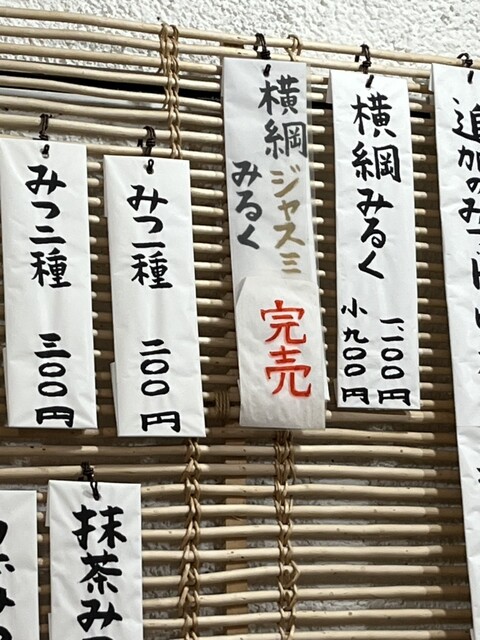 追加のみつ
横綱みるく
一、一〇〇円
小 九〇〇円
横綱ジャスミ
みるく
完売
みつ一種 二〇〇円
みつ二種 三〇〇円
抹茶み